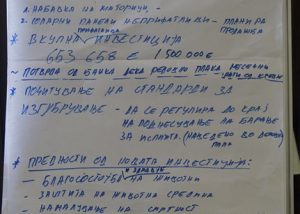 1. НАБАВКА НА МОТОРИЦИ,
2. СОЛАРНИ ПАНЕЛИ НЕПРИФАТЛИВИ - ПЛАНИРА ПРОДАЖБА
* ВКУПНА ИНВЕСТИЦИЈА
653 658 € 1.500 000 €
~ ПОТВРДА ОД БАНКА ДЕКА РЕДОВНО ПЛАЌА МЕСЕЧНИ
РАТИ ОД КРЕДИТ
* ПОЧИТУВАЊЕ НА СТАНДАРДИ ЗА
ИЗГУБРУВАЊЕ - ДА СЕ РЕГУЛИРА ДО КРАЈ
НА ПОДНЕСУВАЊЕ НА БАРАЊЕ
ЗА ИСПЛАТА. (НАВЕДЕНО ВО
* ПРЕДНОСТИ ОД НОВАТА ИНВЕСТИЦИЈА:
И ЗДРАВЈЕ
- БЛАГОСОСТОЈБА НА ЖИВОТНИ
- ЗАШТИТА НА ЖИВОТНА СРЕДИНА
- НАМАЛУВАЊЕ НА СМРТНОСТ